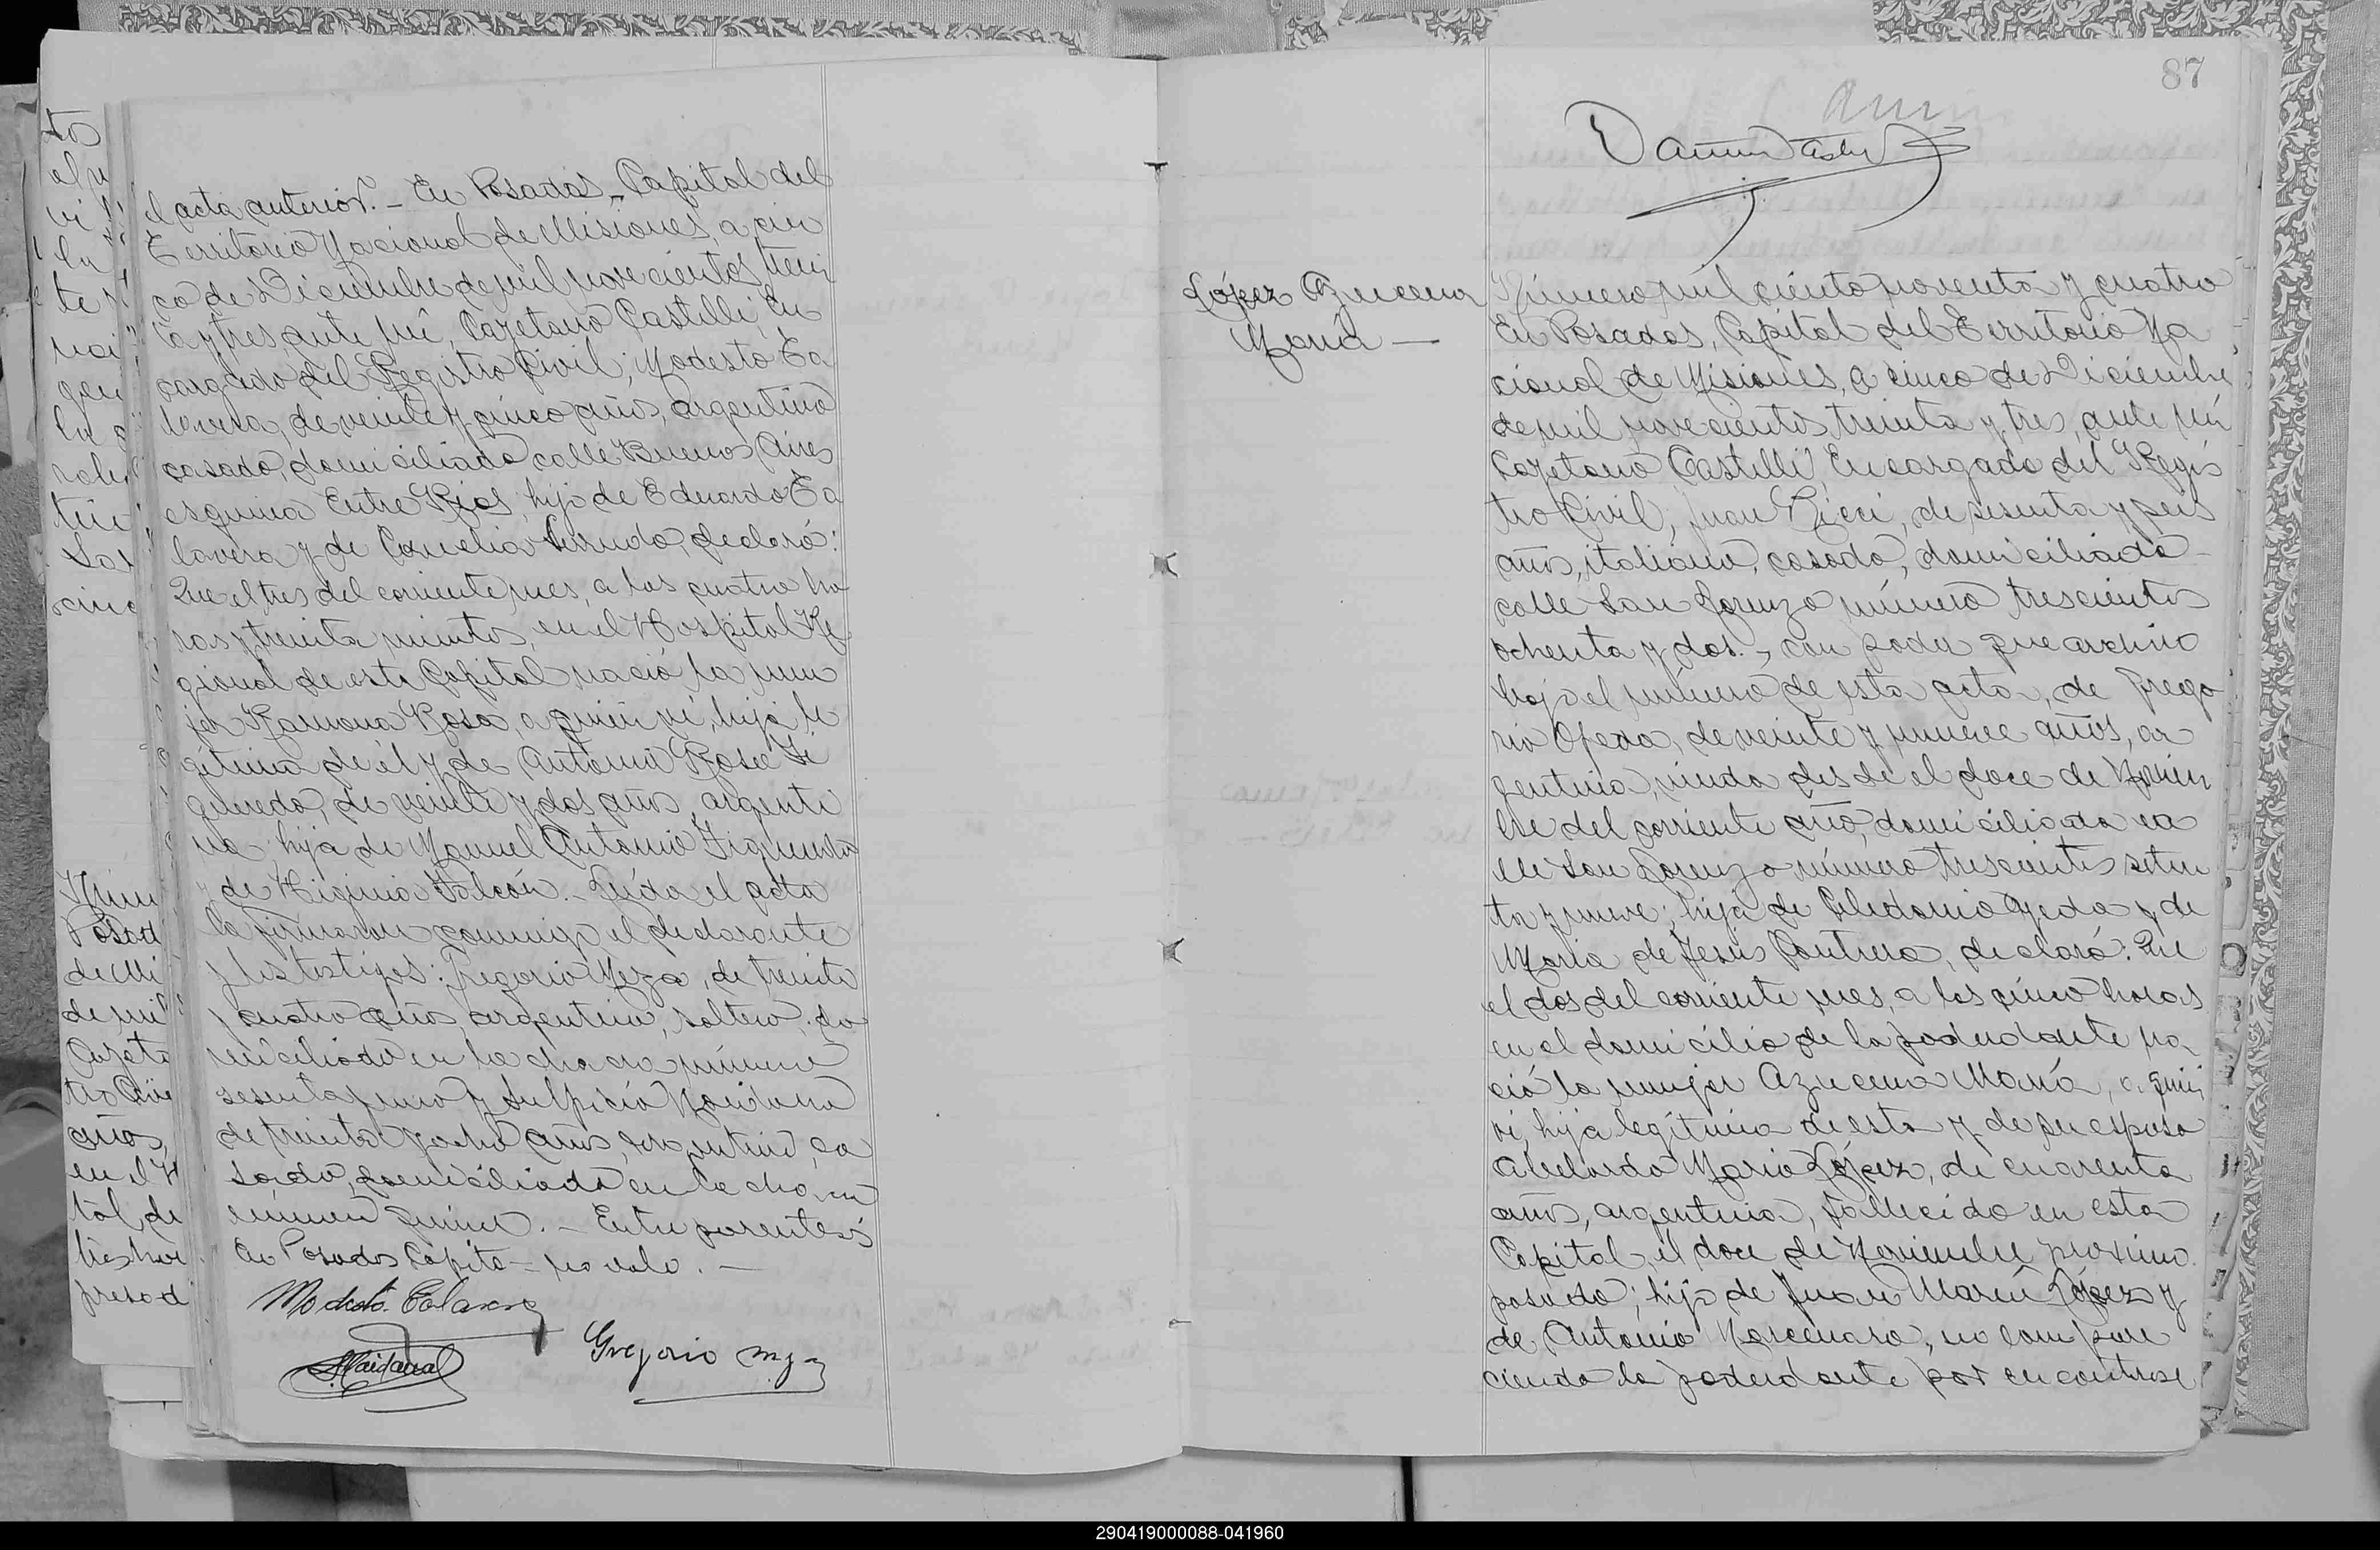 el acta anterior. - En Posadas, Capital del
Territorio Nacional de Misiones, a cin
co de Diciembre de mil novecientos trein
ta y tres, ante mí, Cayetano Castelli, En
cargado del Registro Civil; Modesto Ta
lavera, de veinte y cinco años, argentino
casado, domiciliado calle Buenos Aires
esquina Entre Rios, hijo de Eduardo Ta
lavera y de declaró:
Que el tres del corriente mes, a las cuatro ho
ras y treinta minutos, en el Hospital Re
gional de esta Capital nació la mu
jer Ramona Rosa, a quien ví, hija le
gitima de él y de Antonia Rosa Fi
gueredo, de veinte y dos años, argenti
na, hija de Manuel Antonio Figueredo
y de Higinia Falcón. - Leída el acta
la firmaron conmigo el declarante
y los testigos: Gregorio Meza, de treinta
y cuatro años, argentino, soltero, do
miciliado en la chacra número
sesenta y uno y Sulpicio Maidana
de treinta y ocho años, argentino, ca
sado, domiciliado en la chacra
número quince. - Entre parentesis
En Posadas Capita - no vale. -
Modesto Talavera
Gregorio Meza
SMaidana
87
López Azucena
María -
Número mil ciento noventa y cuatro
En Posadas, Capital del Territorio Na
cional de Misiones, a cinco de Diciembre
de mil novecientos treinta y tres, ante mí
Cayetano Castelli, Encargado del Regis
tro Civil, Juan Ricci, de sesenta y seis
años, italiano, casado, domiciliado
calle San Lorenzo número trescientos
ochenta y dos. -, con poder que archivo
bajo el número de esta acta, de Grego
ria Ojeda, de veinte y nueve años, ar
gentina, viuda desde el doce de Noviem
bre del corriente año, domiciliada ca
lle San Lorenzo número trescientos seten
ta y nueve; hija de Celedonio Ojeda y de
Maria de Jesús declaró: Que
el dos del corriente mes, a las cinco horas
en el domicilio de la poderdante na
ció la mujer Azucena María, a quien
ví, hija legítima de esta y de su esposo
Abelardo Mario López, de cuarenta
años, argentino, fallecido en esta
Capital, el doce de Noviembre proximo
pasado; hijo de Juan María López y
de Antonia no compare
ciendo la poderdante por encontrarse
290419000088-041960